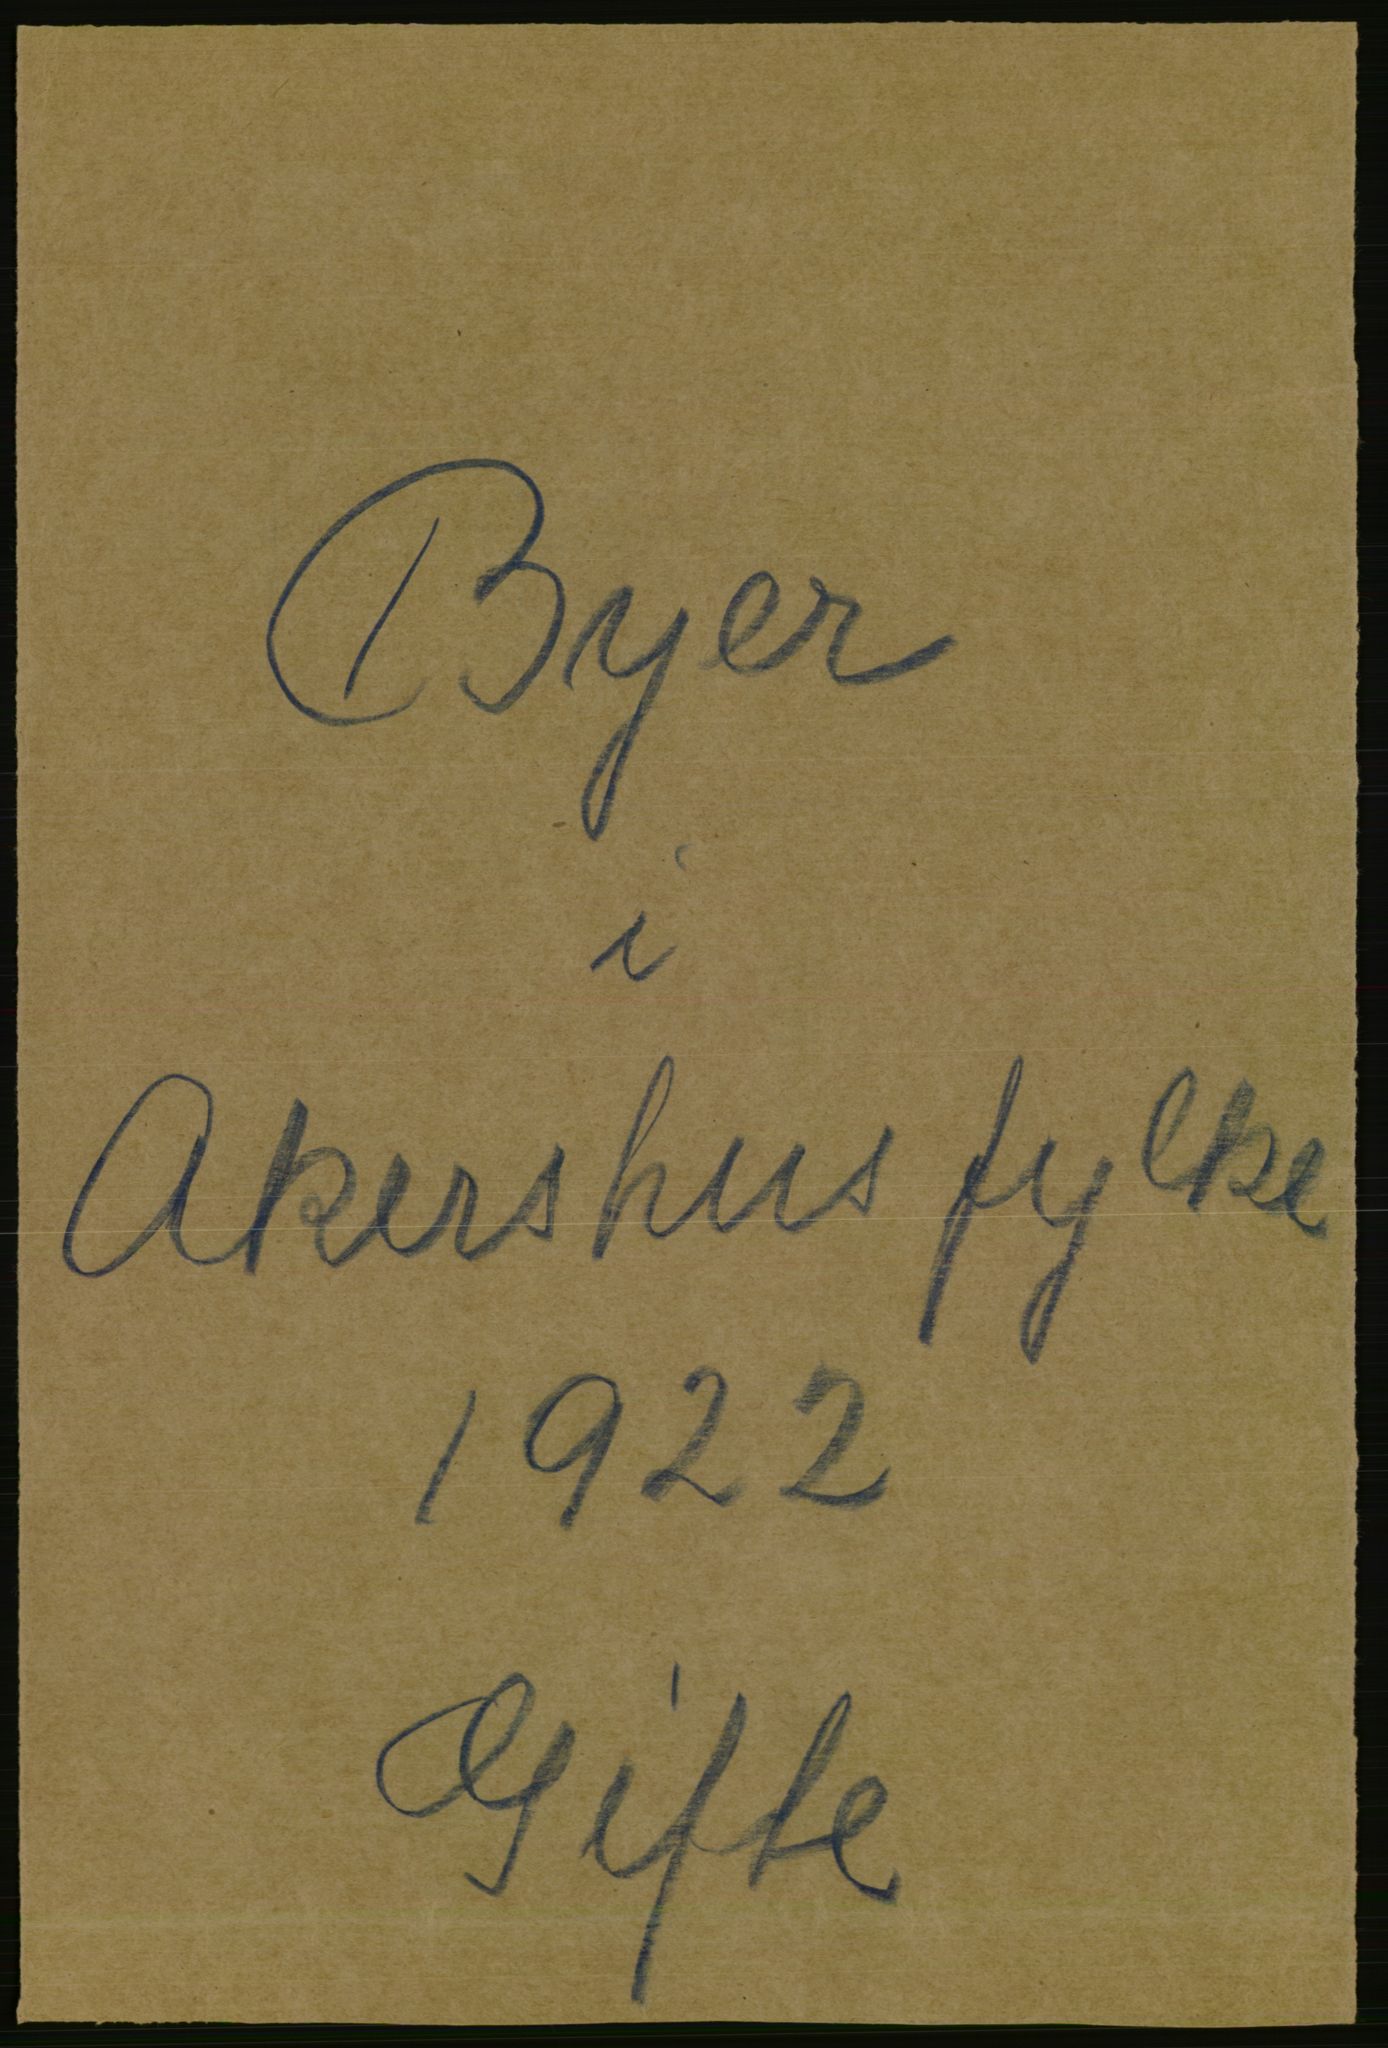 Byer
i
Akershus fylke
1922
Gifte